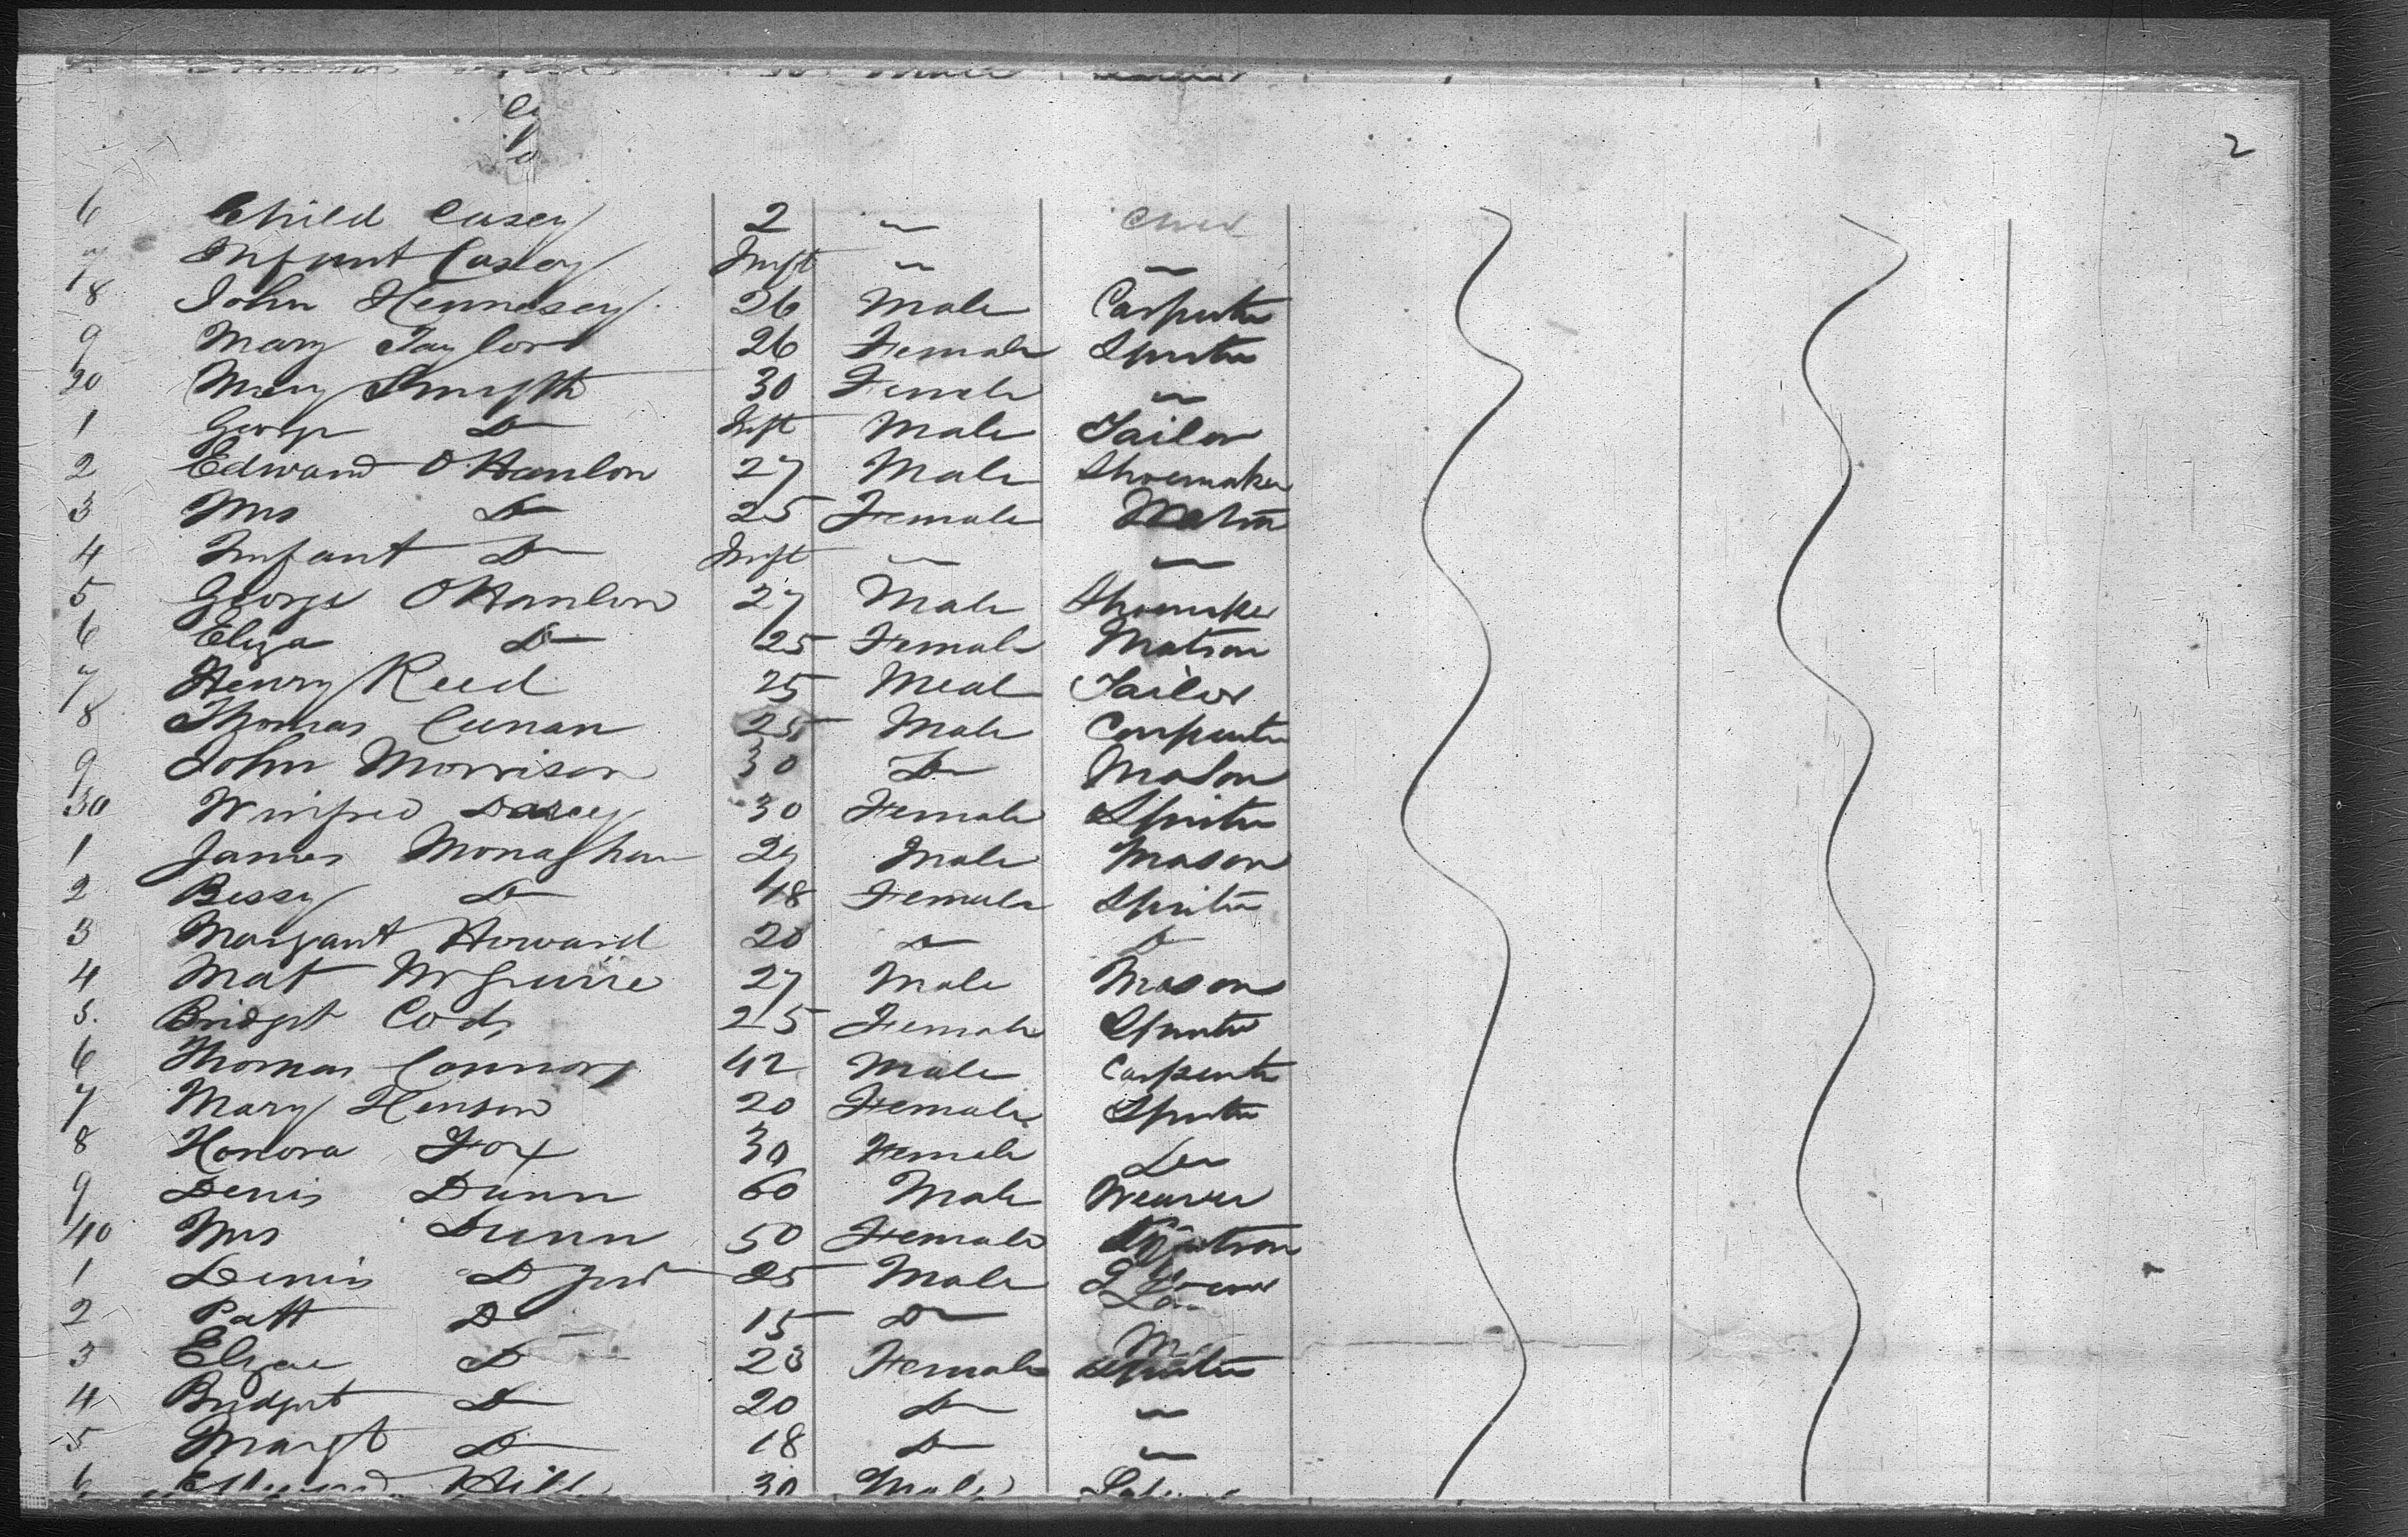 2
6 Child Casey 2 " Child
7 Infant Casey Inft " "
18 John Hennesey 26 Male Carpenter
9 Mary Taylor 26 Female Spinster
20 Mary Smyth 30 Female "
1 George Do Inft Male Tailor
2 Edward O Hanlon 27 Male Shoemaker
3 Mrs Do 25 Female Matron
4 Infant Do Inft " "
5 George O Hanlon 27 Male Shoemaker
6 Eliza Do 25 Female Matron
7 Henry Reed 25 Meal Tailor
8 Thomas Cunan 25 Male Carpenter
9 John Morrison 30 Do Mason
30 Winifred Darcy 30 Female Spinster
1 James Monaghan 24 Male Mason
2 Bessy Do 48 Female Spinster
3 Margaret Howard 20 Do Do
4 Mat McGuire 27 Male Mason
5. Bridget Cody 25 Female Spinster
6 Thomas Connors 42 Male Carpenter
7 Mary Henson 20 Female Spinster
8 Honora Fox 30 Female Do
9 Denis Dunn 60 Male Weaver
40 Mrs Dunn 50 Female Matron
1 Denis Do Jnr 25 Male
2 Patt Do 15 Do
3 Elizae Do 23 Female Spinster
4 Bridget Do 20 Do "
5 Margt Do 18 Do "
6 Edward Hill 30 Male